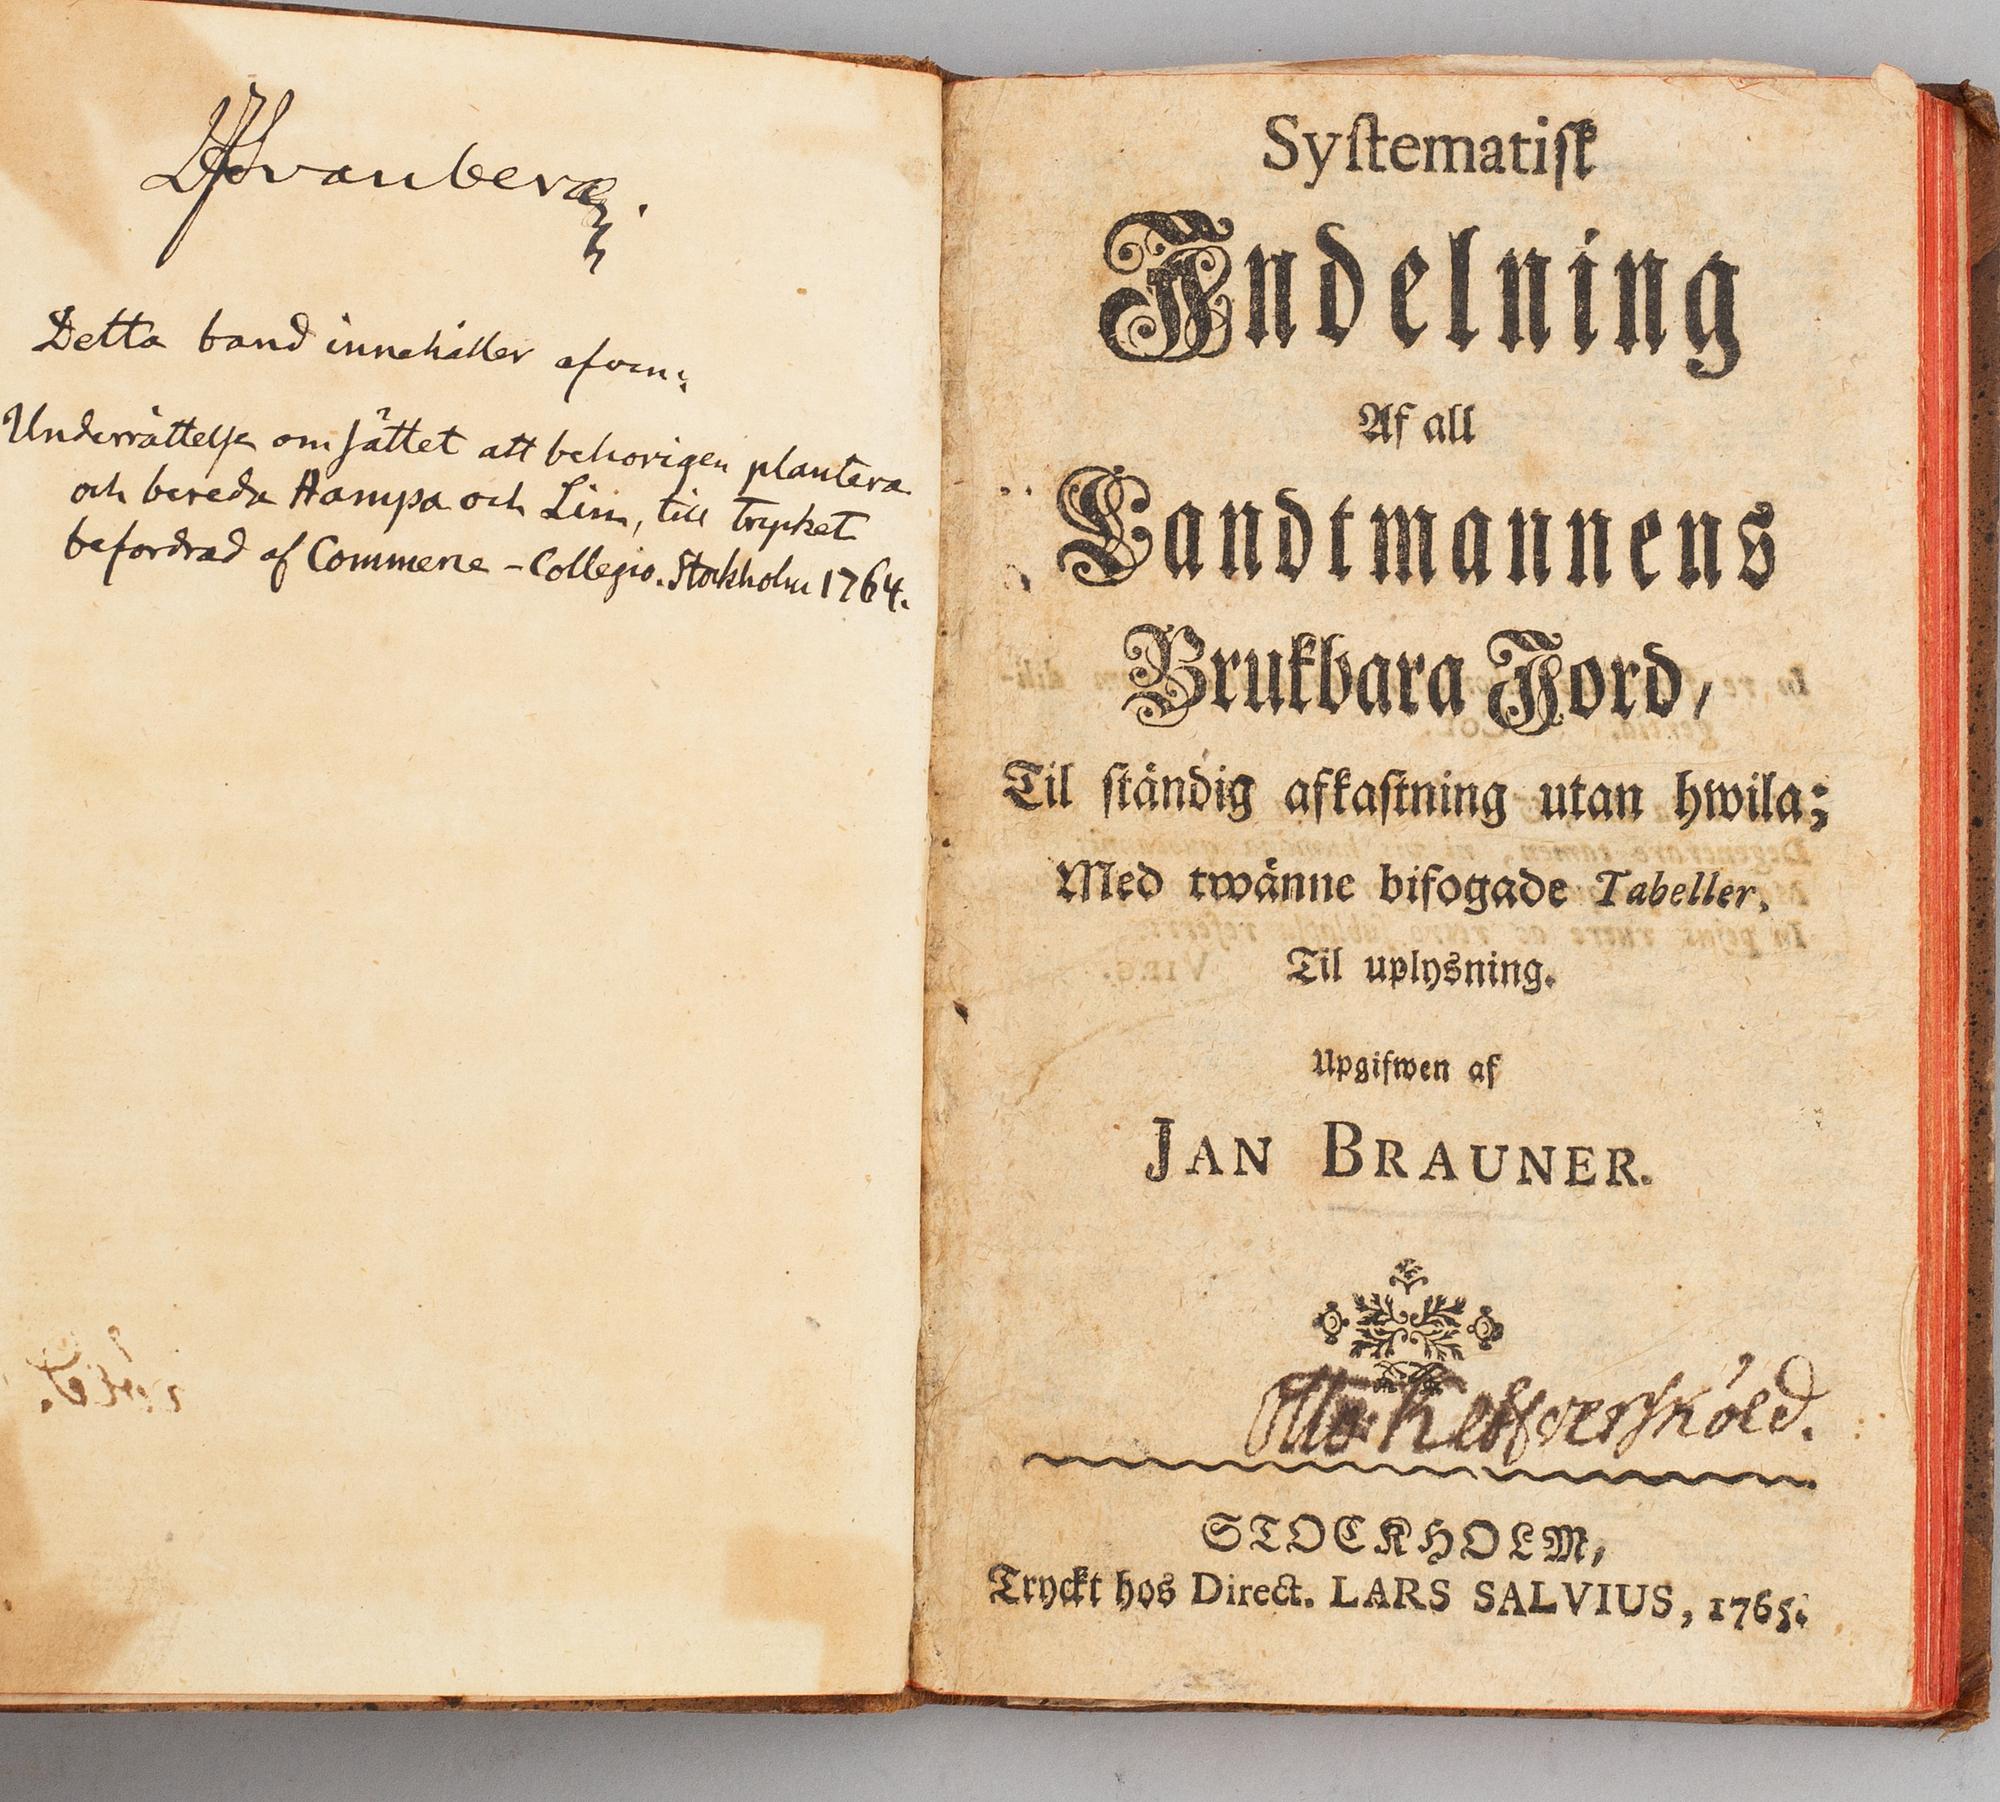 Detta band innehåller äfven:
Underrättelse om sättet att behörigen plantera
och bereda Hampa och Lin, till trycket
befordrad af Commerce-Collegio. Stockholm 1764.
Systematisk
Indelning
Af all
Landtmannens
Brukbara Jord,
Til ständig afkastning utan hwila;
Med twänne bifogade Tabeller,
Til uplysning.
Upgifwen af
JAN BRAUNER.
Otto
STOCKHOLM,
Tryckt hos Direct. LARS SALVIUS, 1765.